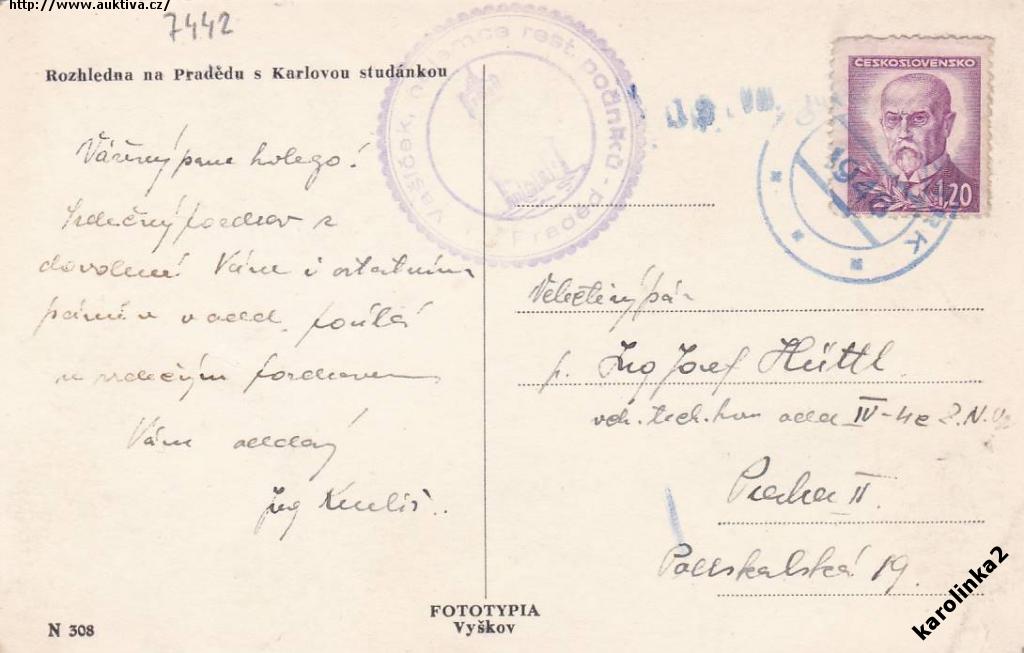 http://www.auktiva.cz/
7442
Rozhledna na Pradědu s Karlovou studánkou
Vašíček, nájemce rest. podniků - Praděd
ČESKOSLOVENSKO
1,20
Vážený pane kolego!
Srdečný pozdrav z
dovolené Vám i ostatním
pánům v odd. posílá
se srdečným pozdravem
Vám oddaný
Ing
Velectěný pán
p. Ing Josef Hüttl
odd IV-4e Z.N.V.
Praha II
Podskalská 19.
FOTOTYPIA
Vyškov
N 308
karolinka2